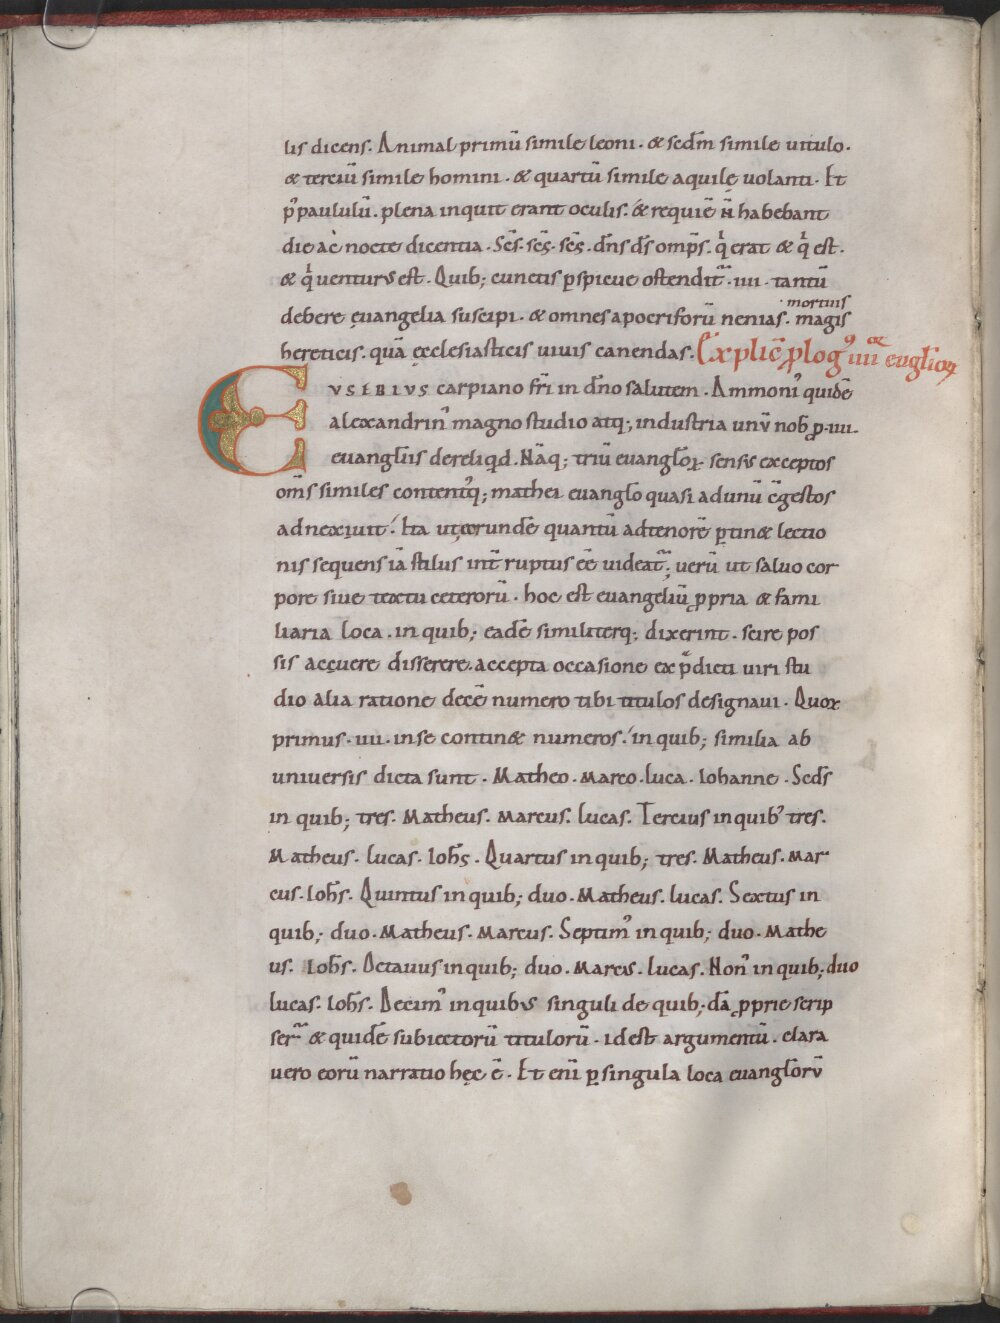 lis dicens. Animal primū simile leoni. & scdm̄ simile uitulo.
& terciū simile homini. & quartū simile aquilę uolanti. Et
p̄ paululū. plena inquit erant oculis. & requiē n̄ habebant
die ac nocte dicentia. Sc̄s. sc̄s. sc̄s. dn̄s ds̄ omp̄s. qͥ erat & qͥ est.
& qͥ uenturus est. Quib; cunctis ꝑspicue ostendit᷑ .iiii. tantū
debere ęuangelia suscipi. & omnes apocriforū nenias. mortuis magis
hereticis. quā ęcclesiasticis uiuis canendas. Explic̄ ꝓlogꝰ iiiior euglioꝝ
EVSEBIVS carpiano fr̄i in dn̄o salutem. Ammoniꝰ quidē
alexandrinꝰ magno studio atq; industria unū nob̄ ꝓ .iiii.
euangl̄iis dereliqͥd. Nāq; triū euangl̄oꝝ sensus exceptos
om̄s similes contentꝰq; mathei euangl̄o quasi ad unū c̄gestos
adnexuit. Ita ut eorundē quantū ad tenorē ꝑtin& lectio
nis sequens iā stilus int̄ ruptus eē uideat᷑; uerū ut saluo cor
pore siue textu ceterorū. hoc est euangeliū ꝓpria & fami
liaria loca. in quib; eadē similiterq; dixerint. scire pos
sis ac cuere disserere. accepta occasione ex p̄dicti uiri stu
dio alia ratione decē numero tibi titulos designaui. Quoꝝ
primus .iiii. in se contin& numeros. in quib; similia ab
uniuersis dicta sunt. Matheo. marco. luca. Iohanne. Scds̄
in quib; tres. Matheus. marcus. lucas. Tercius in quibꝰ tres.
Matheus. lucas. Ioh̄s. Quartus in quib; tres. Matheus. mar
cus. Ioh̄s. Quintus in quib; duo. Matheus. lucas. Sextus in
quib; duo. Matheus. Marcus. Septimꝰ in quib; duo. Mathe
us. Ioh̄s. Octauus in quib; duo. Marcus. lucas. Nonꝰ in quib; duo
lucas. Ioh̄s. Decimꝰ in quibus singuli de quib;dā ꝓprie scrip
ser᷑ & quidē subiectorū titulorū. id est argumentū. clara
uero eorū narratio hęc ē. Et eni ꝑ singula loca euangl̄orū